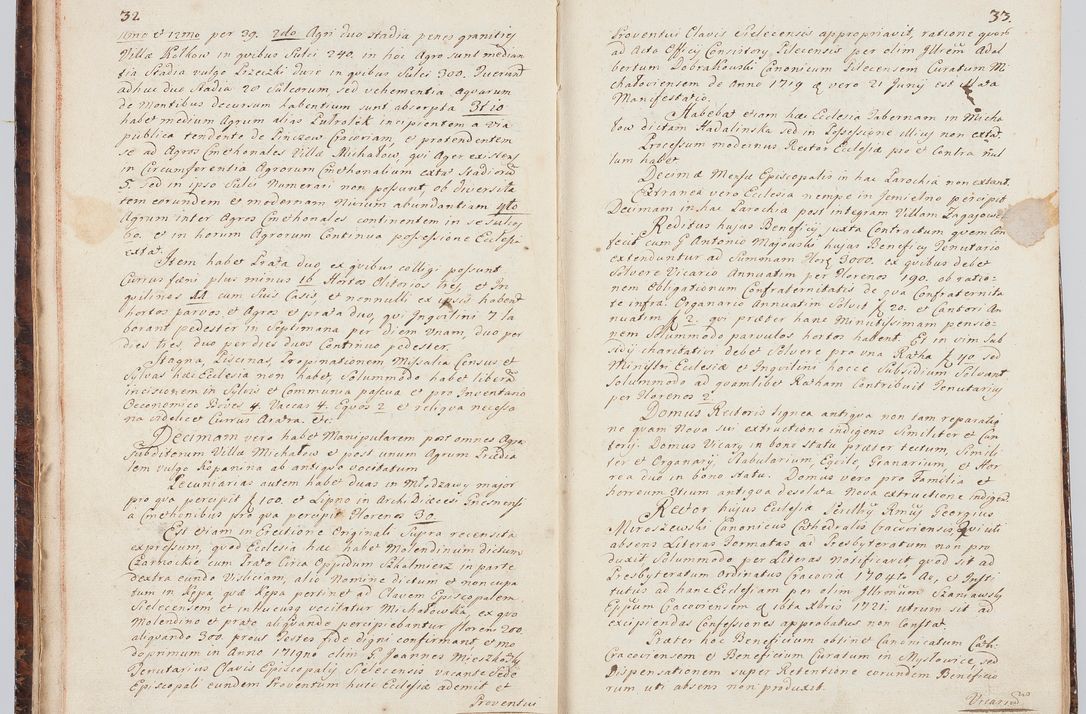 32.
11mo et 12mo per 39. 2do Agri duo stadia penes granities
Villæ Kołkow in quibus Sulci 240. in hoc Agro sunt median
tia Stadia vulgo Przeczki duze in quibus Sulci 300. fuerunt
adhuc duo Stadia 20 Sulcorum sed vehementia Aquarum
de Montibus decursum habentium sunt absorpta 3tio
habet medium Agrum alias Pułrolek incipientem a via
publica tendente de Pinczow Cracoviam, et protendentem
se ad Agros Cmethonales Villæ Michałow, qui Ager existens
in Circumferentia Agrorum Cmethonalium extat Stadiorum
5. Sed in ipso Sulci Numerari non possunt, ob diversita
tem eorundem et modernam Nivium abundantiam 4to
Agrum inter Agros Cmethonales continentem in se Sulcos
60. et in horum Agrorum Continua possessione Ecclesia
extat.
Item habet Prata duo ex quibus colligi possunt
Currus fæni plus minus 16 Hortos Olitorios tres, et In
quilinos 11 cum Suis Casis, et nonnulli ex ipsis habent
hortos parvos et Agros et prata duo, qui Inquilini 7 la
borant pedester in Septimana per Diem Unam, duo per
dies tres, duo per dies duos Continuo pedester.
Stagna, Piscinas, Propinationem Missalia Census et
Sylvas hæc Ecclesia non habet, Solummodo habet liberam
incisionem in Sylvis et Communia pascua et pro Inventario
Oeconomico Boves 4. Vaccas 4. Equos 2 et reliqua necessa
ria videlicet Currus Aratra. etc:
Decimam vero habet Manipularem post omnes Agros
Subditorum Villæ Michałow et post unum Agrum Prædia
lem vulgo Kopanina ab antiquo vocitatum
Pecuniarias autem habet duas in Młodzawy major
pro qua percipit f 100. et Lipno in Archi Diæcesi Gnesnensi
à Cmethonibus pro qua percipit Florenos 30.
Est etiam in Erectione Originali Supra recensita
expressum, quod Ecclesia hæc habet Molendinum dictum
Czarnockie cum Prato Circa Oppidum Skalmierz in parte
dextra eundo Visliciam, alio Nomine dictum et noncupa
tum in Kępa quæ Kępa pertinet ad Clavem Episcopalem
Sielecensem et inhucusq vocitatur Michałowska ex quo
Molendino et prato aliquando percipiebantur Florens 200.
aliquando 300. prout Testes fide digni confirmant, et mo
dernum in Anno 1719no olim G Joannes Mieszkowski
Tenutarius Clavis Episcopalis Sielecensis vacante Sede
Episcopali eundem Proventum huic Ecclesiæ ademit et
Proventui
33.
Proventui Clavis Sielecensis appropriavit, ratione quorum
ad Acta Officij Consistorij Pilecensis per olim Illrem Adal
bertum Dobrakowski Canonicum Pilecensem Curatum Mi
chałoviensem de Anno 1719 a vero 21 Junij est facta
Manifestatio.
Habebat etiam hæc Ecclesia Tabernam in Micha
łow dictam Hadalinska sed in Possessione illius non extat.
Processum modernus Rector Ecclesiæ pro et Contra nul
lum habet
Decimæ Mensæ Episcopalis in hac Parochia non extant.
Extranea vero Ecclesia nempe in Jemielno percipit
Decimam in hac Parochia post integram Villam Zagajow
Reditus hujus Beneficij juxta Contractum quem Con
fecit cum G Antonio Majowski hujus Beneficij Tenutario
extenduntur ad Summam Flor: 3000. ex quibus debet
Solvere Vicario Annuatim per Florenos 190. ob ratio
nem Obligationum Confraternitatis de qua Confraternita
te infra. Organario Annuatim Solvit f 20. et Cantori An
nuatim f 2. qui præter hanc Minutissimam pensio
nem Solummodo parvulos hortos habent. Et in vim Sub
sidij charitativi debet Solvere pro una Ratha f 40 sed
Ministri Ecclesiæ et Inquilini hocce Subsidium Solvant
Solummodo ad quamlibet Ratham Contribuit Tenutarius
per Florenos 2
Domus Rectoris lignea antiqua non tam reparatio
ne quam Nova sui extructione indigens Similiter et Can
toris. Domus Vicarij in bono Statu præter tectum, Simili
ter et Organarij, Stabularium, Equile, Granarium, et Hor
rea duo in bono Statu. Domus vero pro Familia et
horreum Itium antiqua desolata Nova extructione indigent
Rector hujus Ecclesiæ Perillris Rmus Georgius
Miroszewski Canonicus Cathedralis Cracoviensis uti
absens Literas Formatas ad Presbyteratum non pro
duxit, Solummodo per Literas Notificavit quod sit ad
Presbyteratum Ordinatus Cracoviæ 1704to Ao, et Insti
tutus ad hanc Ecclesiam per olim Illrmum Szaniawski
Eppum Cracoviensem a ibta Xbris 1721. utrum sit ad
excipiendas Confessiones approbatus non Constat.
Præter hoc Beneficium obtinet Canonicatum Cath.
Cracoviensem et Beneficium Curatum in Mysłowice, sed
Dispensationem super Retentione eorundem Beneficio
rum uti absens non produxit.
Vicarius